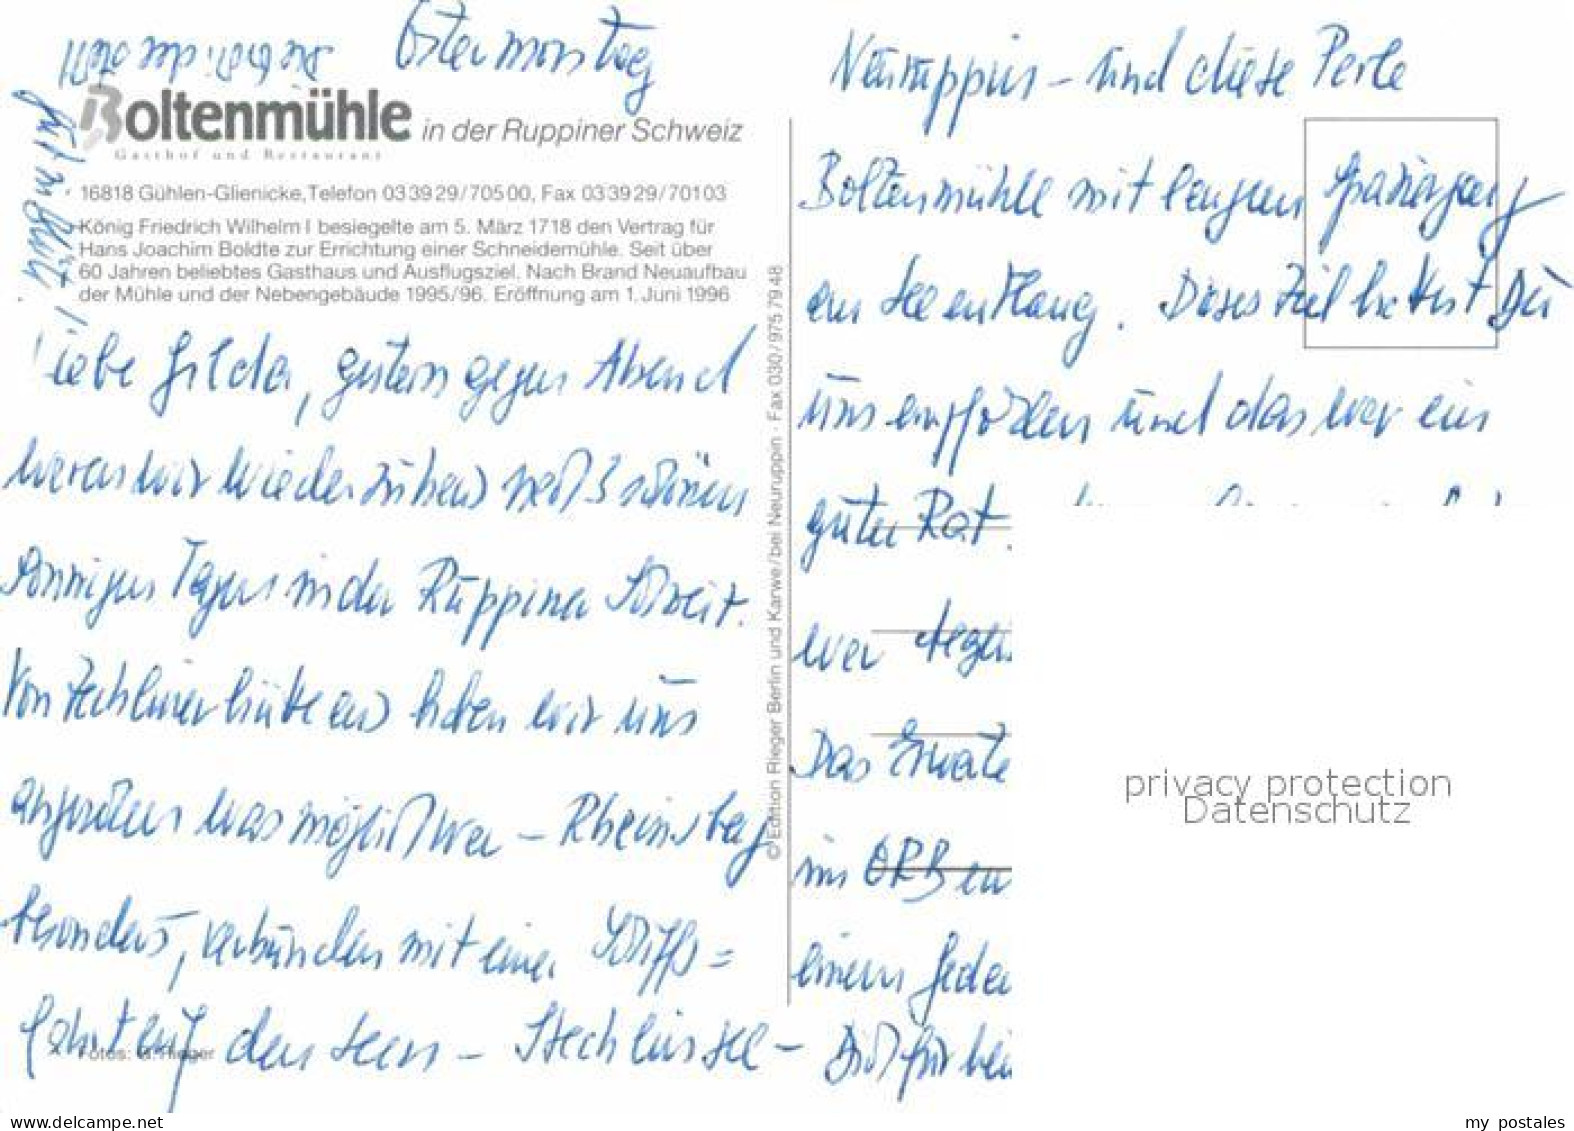 Ostermontag
Boltenmühle in der Ruppiner Schweiz
Gasthof und Restaurant
16818 Gühlen-Glienicke, Telefon 033929/70500, Fax 033929/70103
König Friedrich Wilhelm I besiegelte am 5. März 1718 den Vertrag für
Hans Joachim Boldte zur Errichtung einer Schneidemühle. Seit über
60 Jahren beliebtes Gasthaus und Ausflugsziel. Nach Brand Neuaufbau
der Mühle und der Nebengebäude 1995/96. Eröffnung am 1. Juni 1996
Liebe Gilda, gestern gegen Abend
waren wir wieder zuhaus nach 3 schönen
sonnigen Tagen in der Ruppiner Schweiz.
Von Zechlinerhütte aus haben wir uns
angesehen was möglich war – Rheinsberg
besonders, verbunden mit einer Schiffs=
fahrt auf den Seen – Stechlinsee –
Fotos: G. Rieger
© Edition Rieger Berlin und Karwe/bei Neuruppin · Fax 030/975 79 48
Neuruppin – und diese Perle
Boltenmühle mit langem Spaziergang
am See entlang. Dieses Ziel hattest Du
uns empfohlen und das war ein
guter Rat.
war
Das
im ORB
einem
für
privacy protection
Datenschutz
www.delcampe.net
my_postales